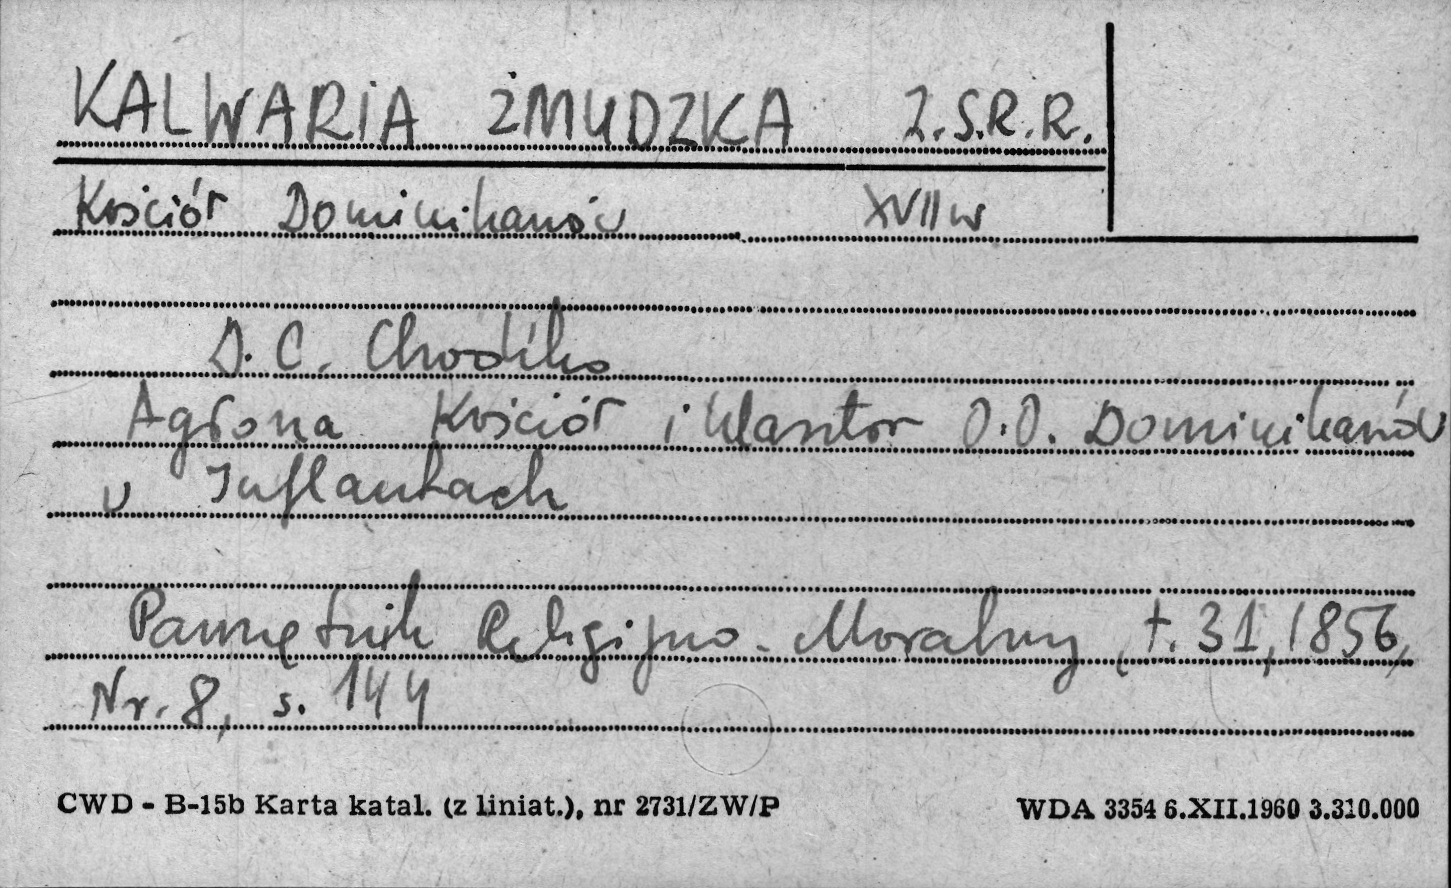 KALWARIA ŻMUDZKA Z.S.R.R.
Kościół Dominikanów XVII w
D. C. Chodźko
Agłona Kościół i klasztor O.O. Dominikanów
w Inflantach
Pamiętnik Religijno-Moralny, t. 31, 1856,
Nr. 8, s. 144
CWD - B-15b Karta katal. (z liniat.), nr 2731/ZW/P WDA 3354 6.XII.1960 3.310.000